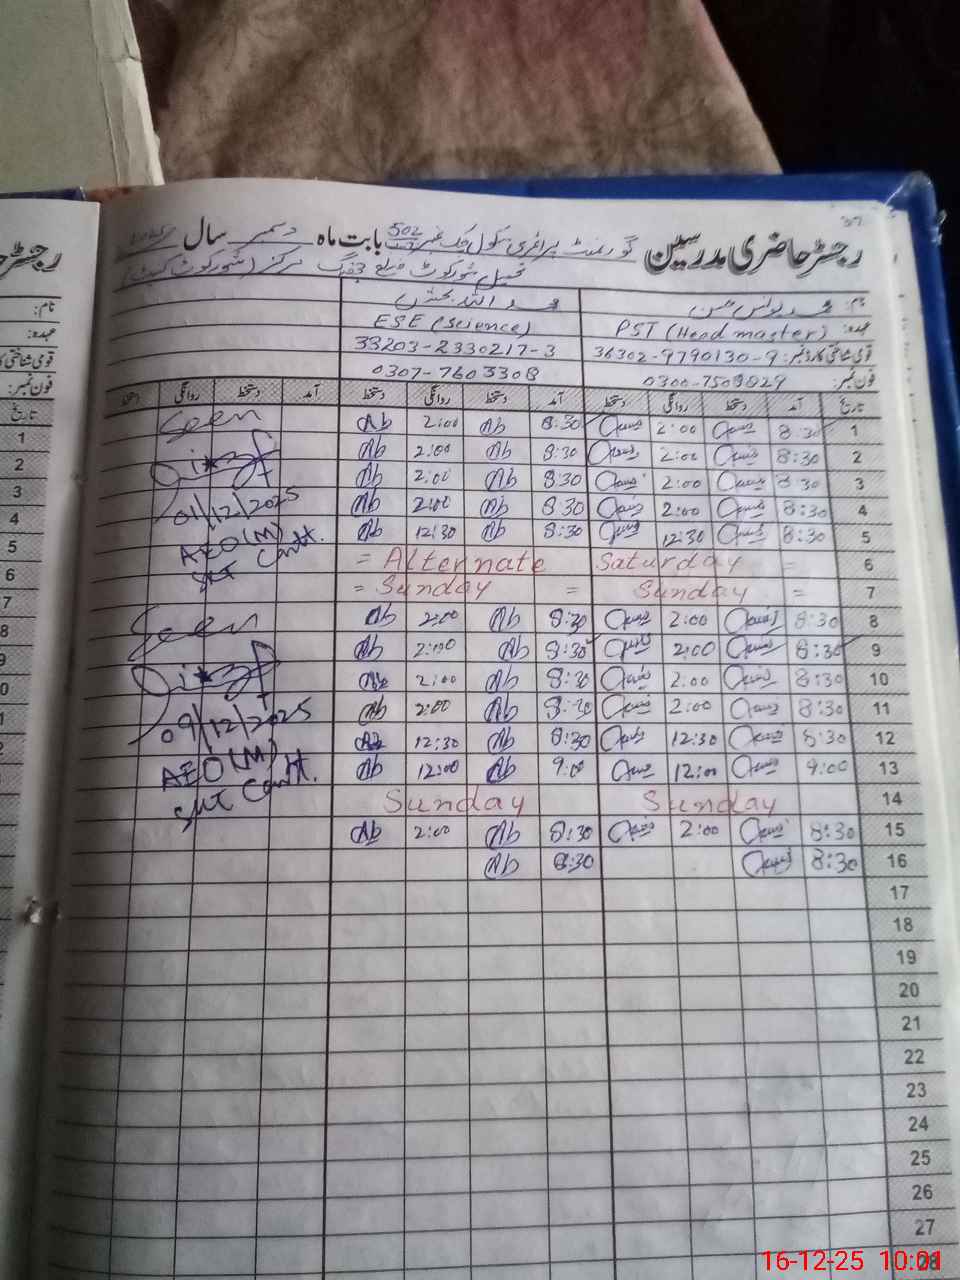 37
رجسٹر حاضری مدرسین گورنمنٹ پرائمری سکول چک نمبر 502 بابت ماہ دسمبر سال
تحصیل شورکوٹ ضلع جھنگ مرکز (شورکوٹ کینٹ)
نام: محمد یونس حسن محمد اللہ بخش
عہدہ: PST (Head master) ESE (Science)
قومی شناختی کارڈ نمبر: 36302-9790130-9 33203-2330217-3
فون نمبر: 0300-7508829 0307-7603308
تاریخ آمد دستخط روانگی دستخط آمد دستخط روانگی دستخط آمد دستخط روانگی دستخط
1 8:30 2:00 8:30 Ab 2:00 Ab Seen
2 8:30 2:00 8:30 Ab 2:00 Ab
3 8:30 2:00 8:30 Ab 2:00 Ab
4 8:30 2:00 8:30 Ab 2:00 Ab 01/12/2025
5 8:30 12:30 8:30 Ab 12:30 Ab AEO(M)
6 = Alternate Saturday =
7 = Sunday = Sunday =
8 8:30 2:00 8:30 Ab 2:00 Ab Seen
9 8:30 2:00 8:30 Ab 2:00 Ab
10 8:30 2:00 8:30 Ab 2:00 Ab
11 8:30 2:00 8:30 Ab 2:00 Ab 09/12/2025
12 8:30 12:30 8:30 Ab 12:30 Ab AEO(M)
13 9:00 12:00 9:00 Ab 12:00 Ab
14 Sunday Sunday
15 8:30 2:00 8:30 Ab 2:00 Ab
16 8:30 8:30 Ab
17
18
19
20
21
22
23
24
25
26
27
28
رجسٹر
نام:
عہدہ:
قومی شناختی کا
فون نمبر:
تاریخ
1
2
3
4
5
6
7
8
9
0
1
2
3
4
5
6
7
8
9
16-12-25 10:01